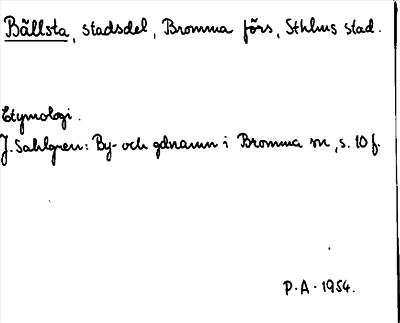 Bällsta, stadsdel, Bromma förs, Sthlms stad.
Etymologi.
J. Sahlgren: By- och gdnamn i Bromma sn, s. 10 f.
P.A. 1954.